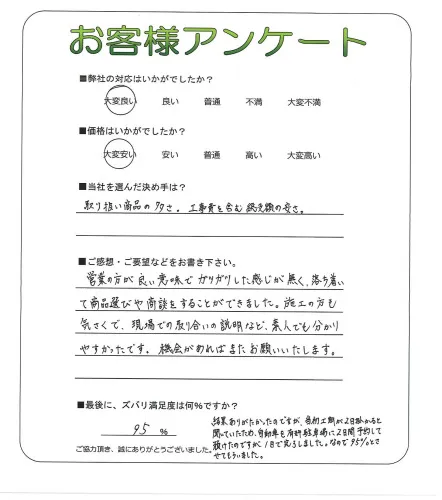 お客様アンケート
■弊社の対応はいかがでしたか?
大変良い 良い 普通 不満 大変不満
■価格はいかがでしたか?
大変安い 安い 普通 高い 大変高い
■当社を選んだ決め手は?
取り扱い商品の多さ。工事費を含む総支額の安さ。
■ご感想・ご要望などをお書き下さい。
営業の方が良い意味でガツガツした感じが無く、落ち着い
て商品選びや商談をすることができました。施工の方も
気さくで、現場での取り合いの説明など、素人でも分かり
やすかったです。機会があればまたお願いいたします。
■最後に、ズバリ満足度は何%ですか?
95 %
ご協力頂き、誠にありがとうございました。
結果ありがたかったのですが、当初工期が2日掛かると
聞いていたため、自動車を有料駐車場に2日間予約して
預けたのですが1日で完了しました。なので95%とさ
せてもらいました。